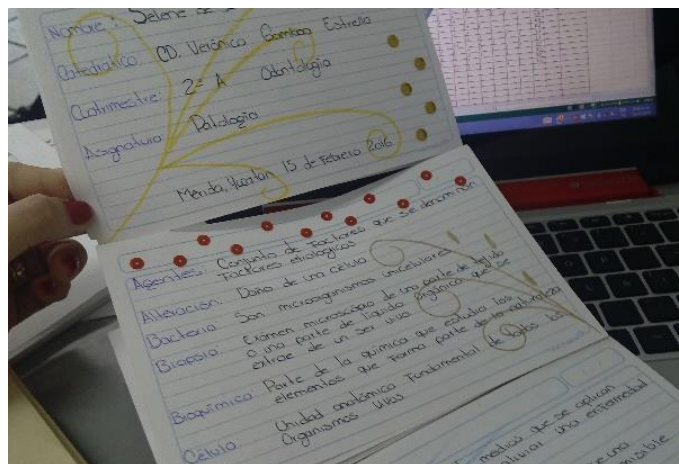 Nombre: Selene
Catedratico: CD. Verónica Gamboa Estrella
Cuatrimestre: 2º A Odontología
Asignatura: Patología
Mérida, Yucatan 15 de Febrero 2016
Agentes: Conjunto de Factores que se denominan
Factores etiologicos
Alteración: Daño de una célula
Bacteria: Son microorganismos unicelulares
Biopsia: Exámen microscópio de una parte de tejido
o una parte de liquido orgánico que se
extrae de un ser vivo
Bioquímica: Parte de la quimica que estudia los
elementos que Forma parte de la naturaleza
Célula: Unidad anatómica Fundamental de todos los
Organismos vivos
medicas que se aplican
aliviar una enfermedad